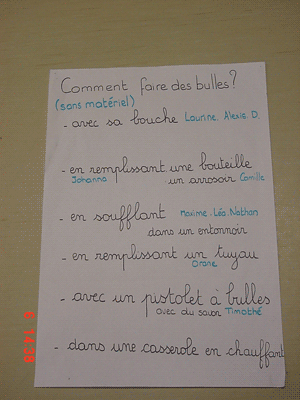 Comment faire des bulles?
(sans matériel)
- avec sa bouche Laurine Alexis. D.
- en remplissant une bouteille
Johanna un arrosoir Camille
- en soufflant Maxime. Léa. Nathan
dans un entonnoir
- en remplissant un tuyau
Orane
- avec un pistolet à bulles
avec du savon Timothé
- dans une casserole en chauffant